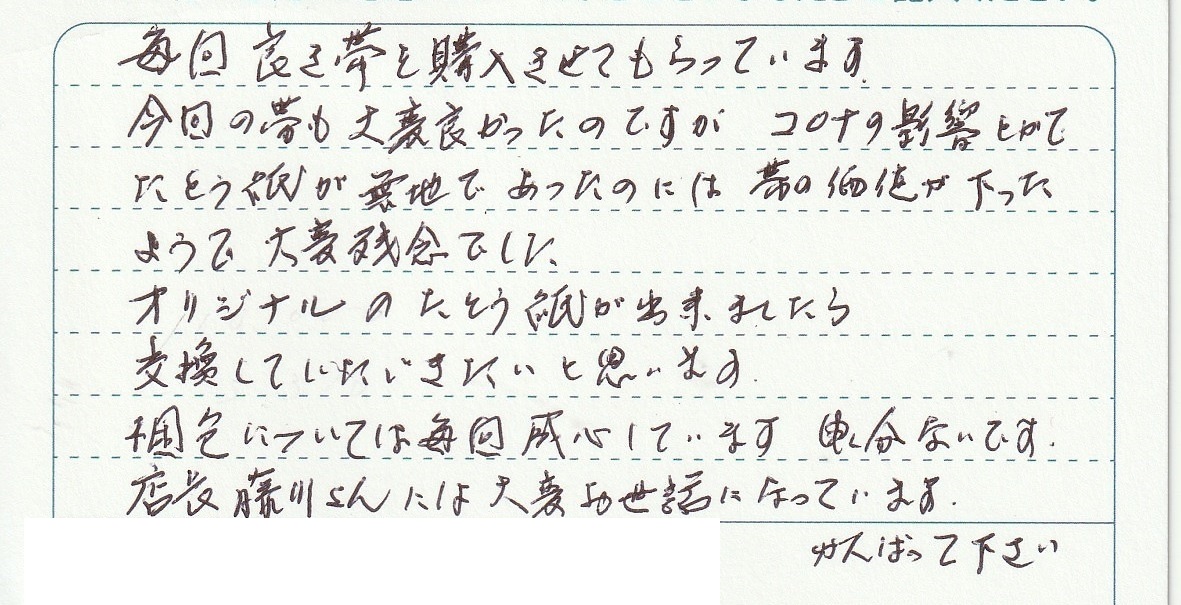 毎回 良き帯を購入させてもらっています
今回の帯も大変良かったのですが コロナの影響とかで
たとう紙が無地であったのには 帯の価値が下った
ようで 大変残念でした
オリジナルのたとう紙が出来ましたら
交換していただきたいと思います.
梱包については毎回感心しています 申し分ないです.
店長藤川さんには大変お世話になっています.
がんばって下さい